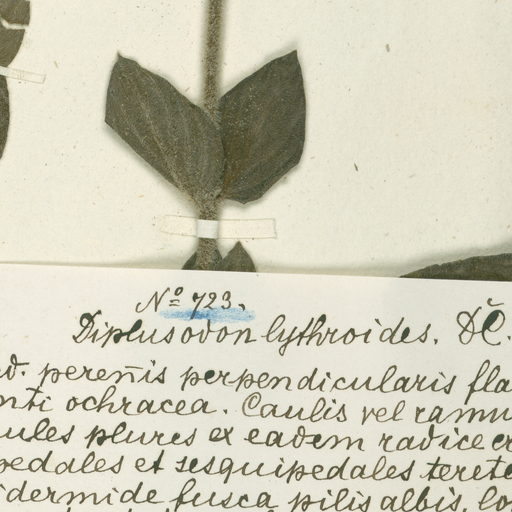 Nº 723.
Diplusodon lythroides. DC.
perennis perpendicularis fla
nti ochracea. Caulis vel ramu
ules plures ex eadem radice er
pedales et sesquipedales terete
idermide fusca pilis albis, lo